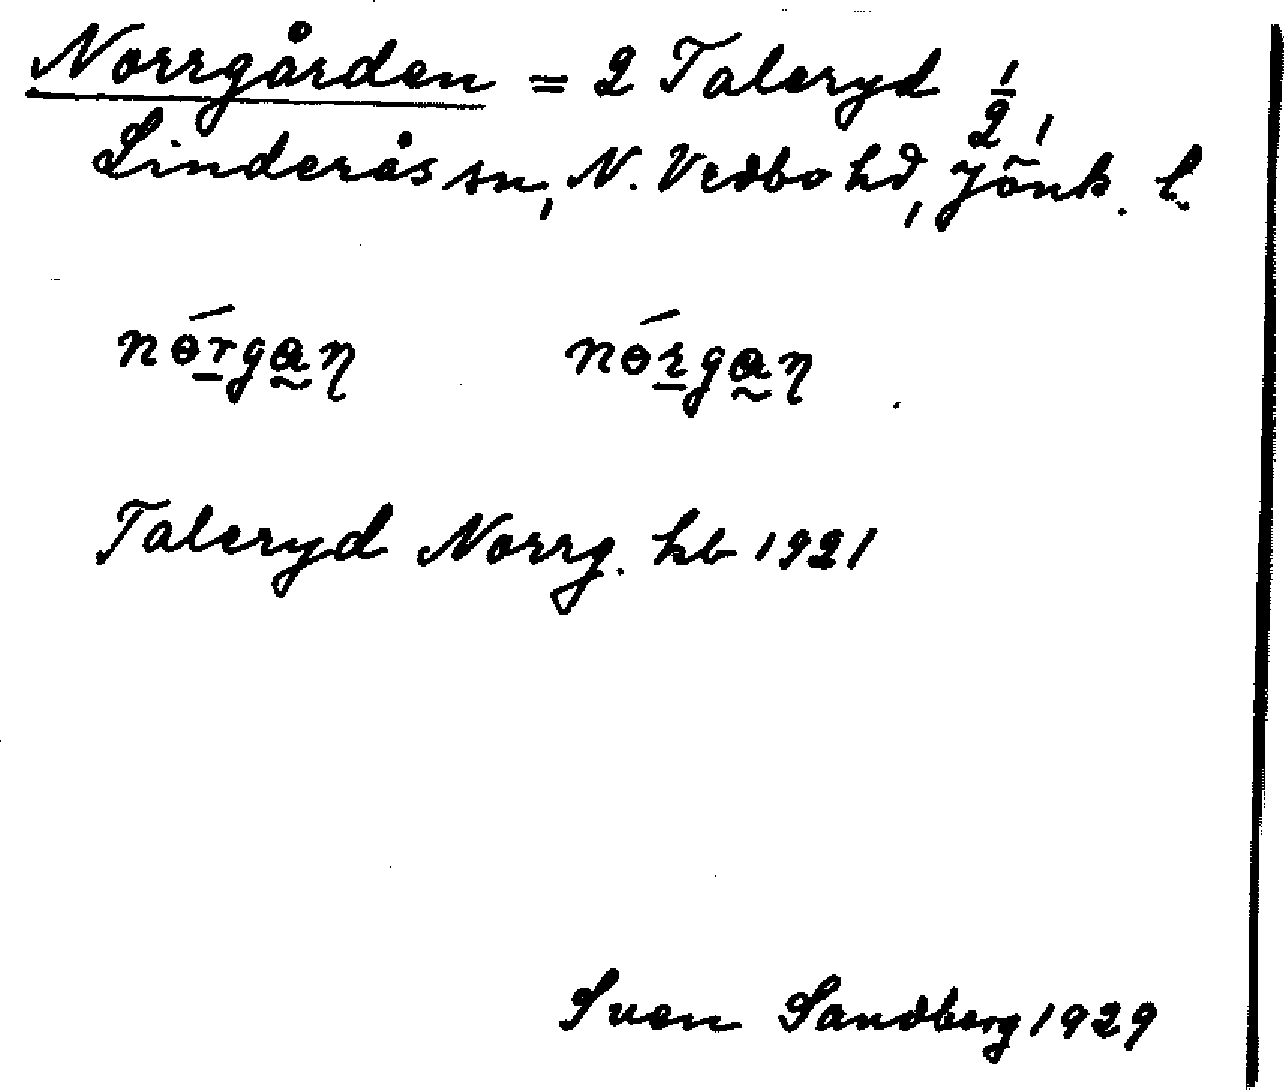 Norrgården = 2 Taleryd 1/2,
Linderås sn, N. Vedbo hd, Jönk. l.
nórgan nórgan
Taleryd Norrg. hb 1921
Sven Sandberg 1929